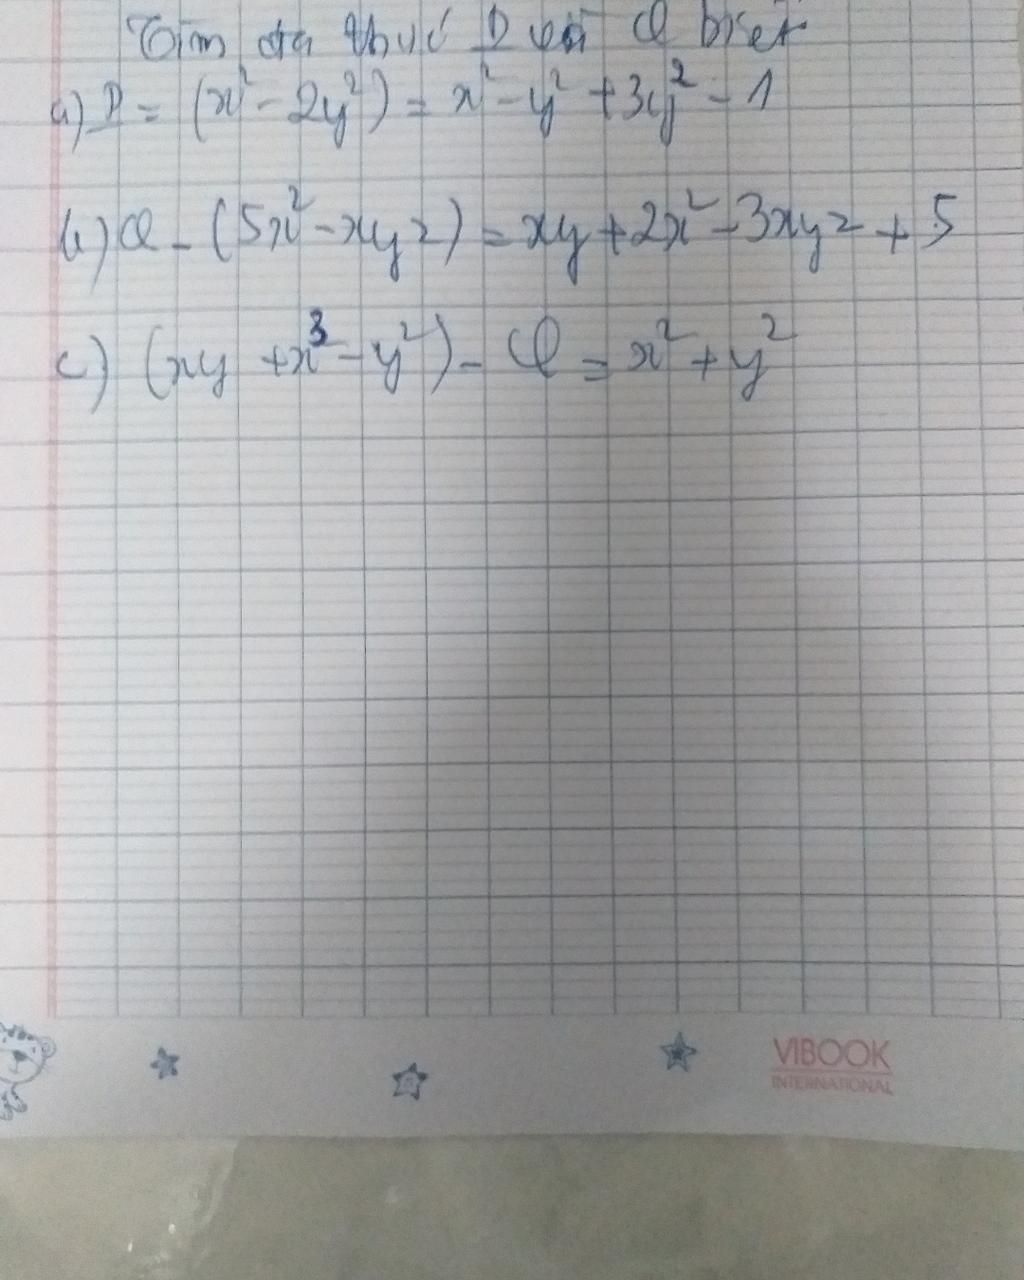 Tìm đa thức P và Q biết
a) P = (x² - 2y²) = x² - y² + 3y² - 1
b) Q - (5x² - xyz) = xy + 2x² - 3xyz + 5
c) (xy + x³ - y²) - Q = x² + y²
VIBOOK
INTERNATIONAL